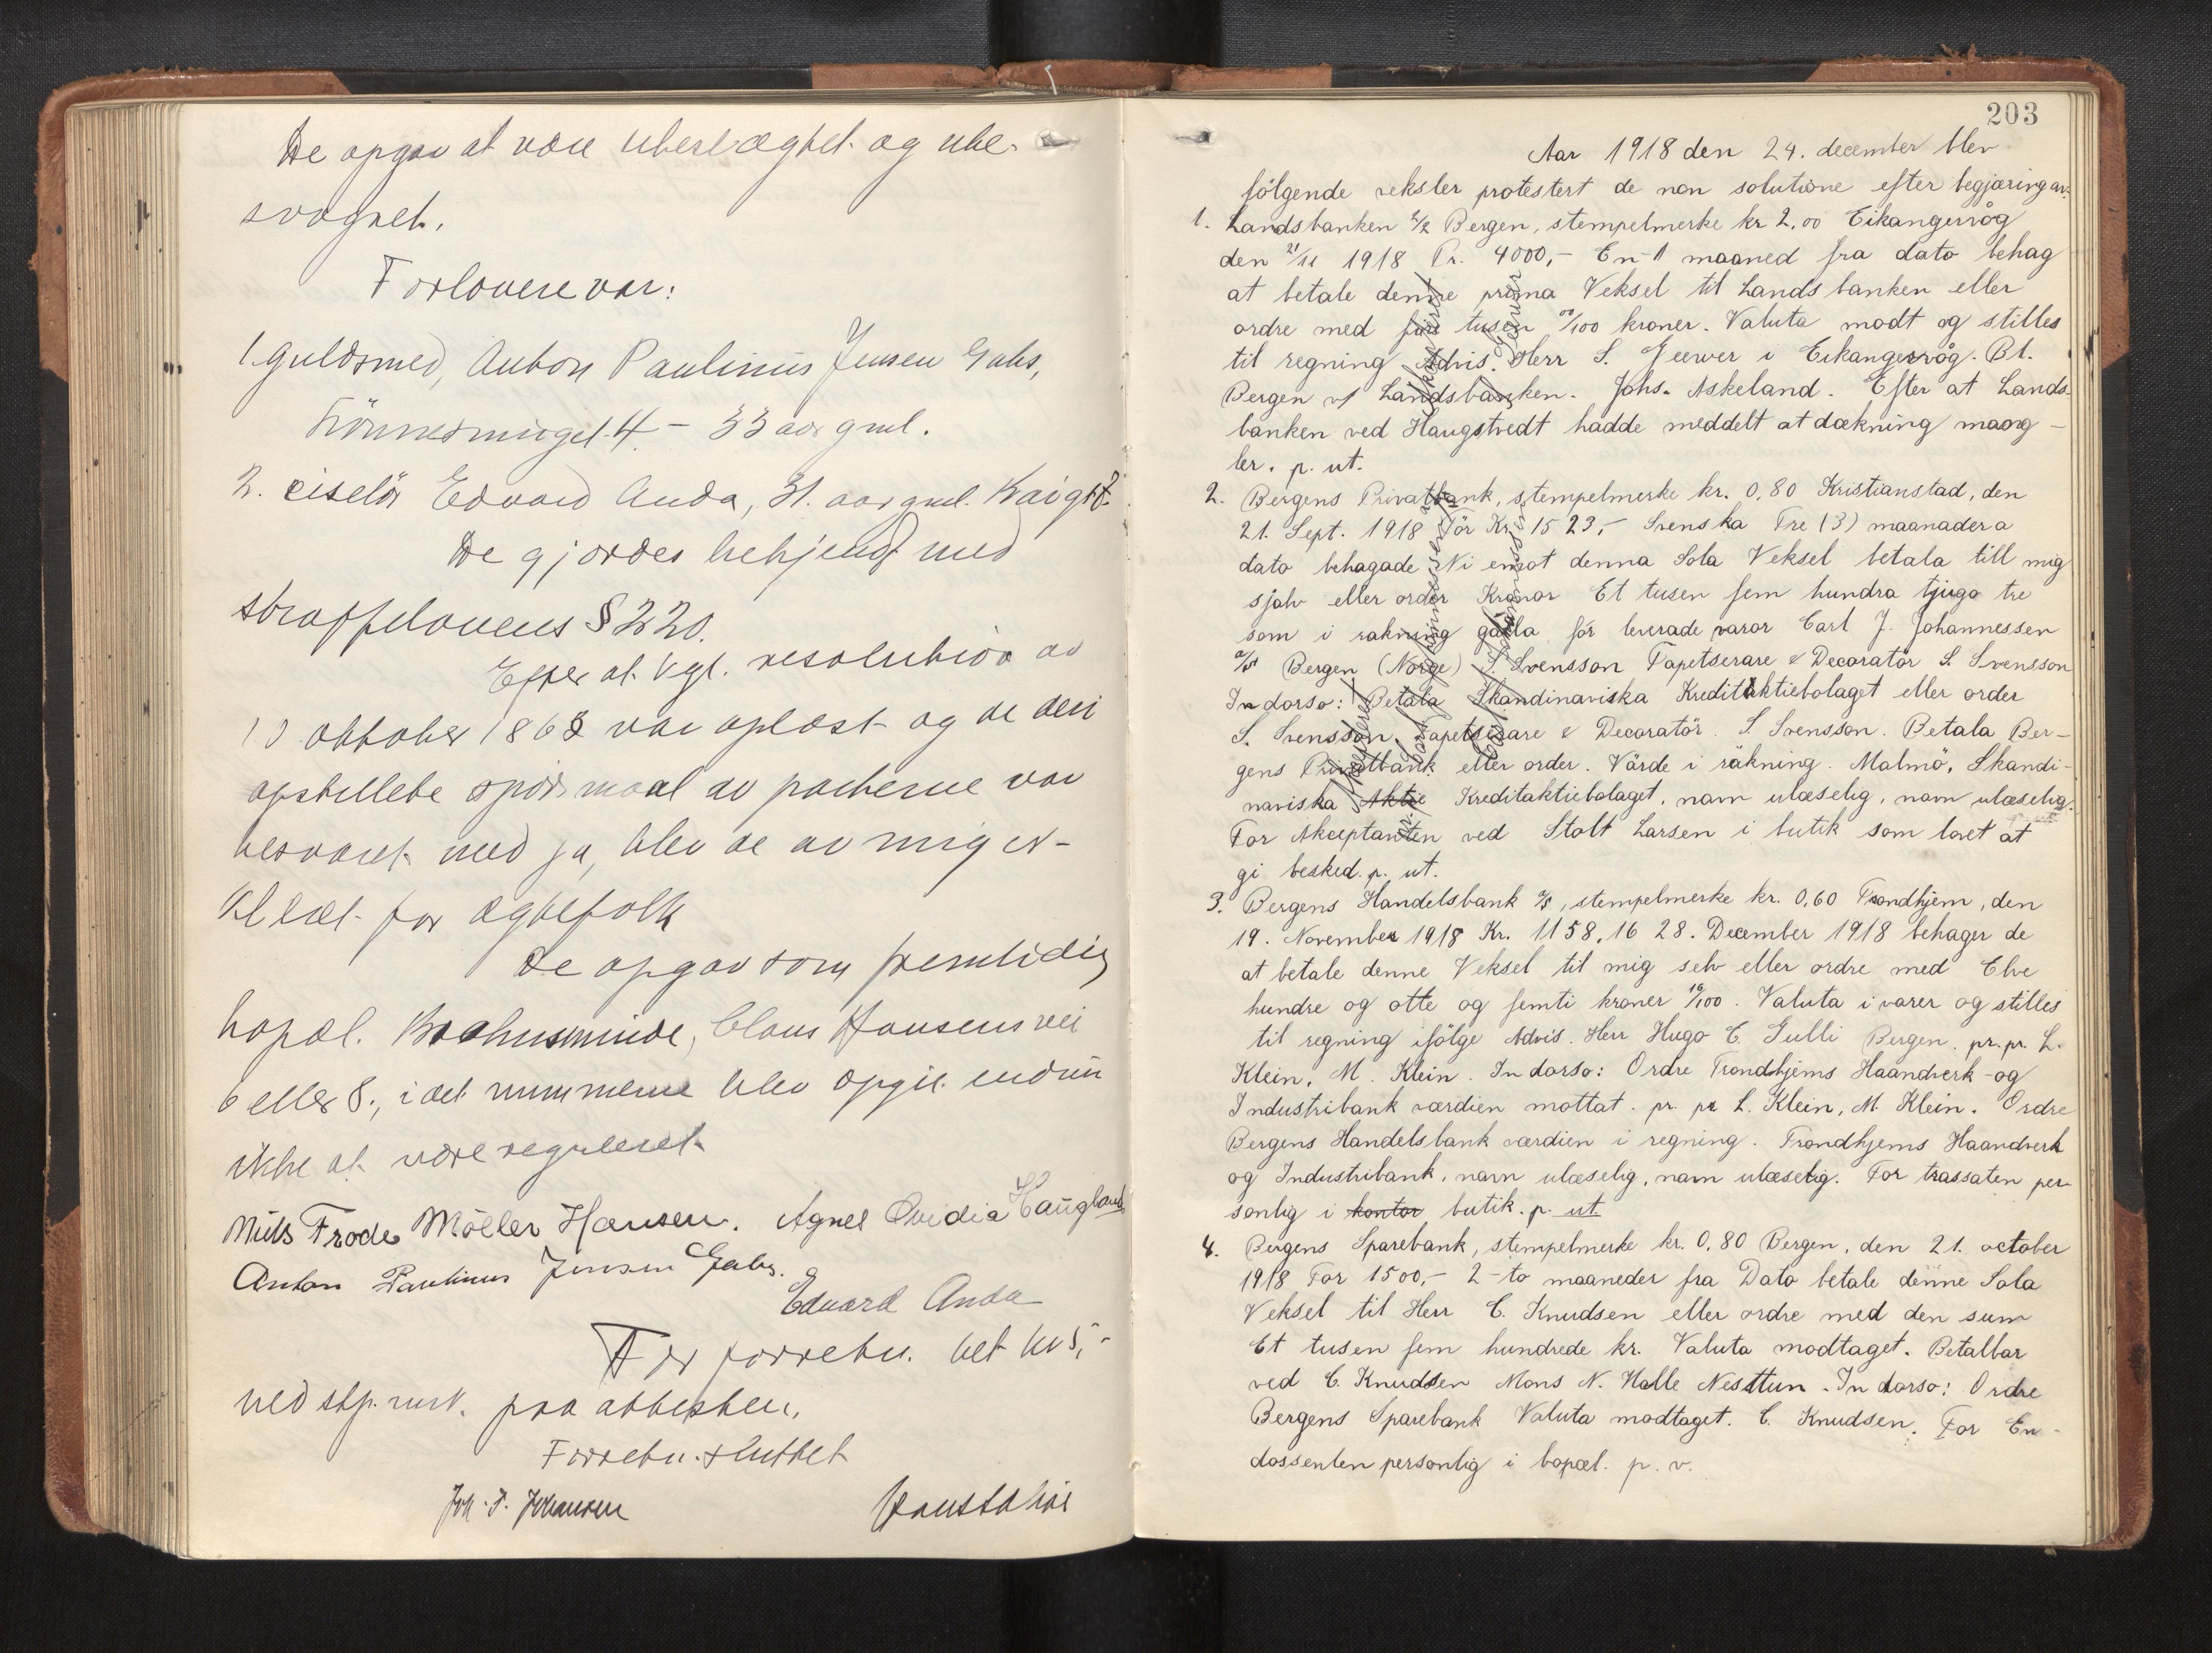 De opgav at være ubeslægtet og ube-
svogret.
Forlovere var:
1. Guldsmed, Anton Paulinus Jensen Gahs,
4 - 33 aar gml.
2. ciselør Edvard Anda, 31. aar gml.
De gjordes bekjendt med
straffelovens § 220.
Efter at kgl. resolution av
10 oktober 1868 var oplæst og de deri
opstillede spørsmaal av parterne var
besvaret med ja, blev de av mig er-
klæret for ægtefolk
De opgav som fremtidig
bopæl. Claus Hansens vei
6 eller 8., idet nummerne blev opgit endnu
ikke at være reguleret
Niels Frode Möller Hansen. Agnes Ovidia Haugland
Anton Paulinus Jensen Gahs.
Edvard Anda
For forretn. bet kr 5,-
ved stp. mrk. paa attesten.
Forretn. sluttet
Joh. P. Johansen
203
Aar 1918 den 24. december blev
følgende veksler protestert de non solutione efter begjæring av:
1. Landsbanken A/S Bergen, stempelmerke kr 2,00 Eikangervåg
den 21/11 1918 Kr. 4000,- En-1 maaned fra dato behag
at betale denne prima Veksel til Landsbanken eller
ordre med fire tusen 00/100 kroner. Valuta modt og stilles
til regning Advis. Herr S. i Eikangervåg. Bt.
Bergen v/ Landsbanken. Johs. Askeland. Efter at Lands-
banken ved Haugstvedt hadde meddelt at dækning mang-
ler. p. ut.
2. Bergens Privatbank, stempelmerke kr. 0,80 Kristianstad, den
21. Sept. 1918 För Kr. 1523,- Svenska Tre (3) maanader a
dato behagade Ni emot denna Sola Veksel betala till mig
sjalv eller order Kronor Et tusen fem hundra tjugo tre
som i rakning galla för leverade varor Carl J. Johannessen
A/S Bergen (Norge) S. Svensson Tapetserare & Decoratör S. Svensson
In dorso: Betala Skandinaviska Kreditaktiebolaget eller order
S. Svensson, Tapetserare & Decoratör. S. Svensson. Betala Ber-
gens Privatbank eller order. Värde i räkning. Malmö, Skandi-
naviska Aktie Kreditaktiebolaget, navn ulæselig, navn ulæselig.
For Akceptanten ved Stolt Larsen i butik som lovet at
gi besked. p. ut.
3. Bergens Handelsbank A/S, stempelmerke kr. 0,60 Trondhjem, den
19. November 1918 Kr. 1158,16 28. December 1918 behager de
at betale denne Veksel til mig selv eller ordre med Elve
hundre og otte og femti kroner 16/100. Valuta i varer og stilles
til regning ifölge Advis. Herr Hugo C. Gulli Bergen. pr. pr. L.
Klein, M. Klein. In dorso: Ordre Trondhjems Haandverk-og
Industribank værdien mottat. pr. pr L. Klein, M. Klein. Ordre
Bergens Handelsbank værdien i regning. Trondhjems Haandverk
og Industribank, navn ulæselig, navn ulæselig. For trassaten per-
sonlig i kontor butik. p. ut.
4. Bergens Sparebank, stempelmerke kr. 0,80 Bergen, den 21. october
1918 For 1500,- 2-to maaneder fra Dato betale denne Sola
Veksel til Herr C. Knudsen eller ordre med den sum
Et tusen fem hundrede kr. Valuta modtaget. Betalbar
ved C. Knudsen Mons N. Halle Nesttun. In dorso: Ordre
Bergens Sparebank Valuta modtaget. C. Knudsen. For En-
dossenten personlig i bopæl. p. v.